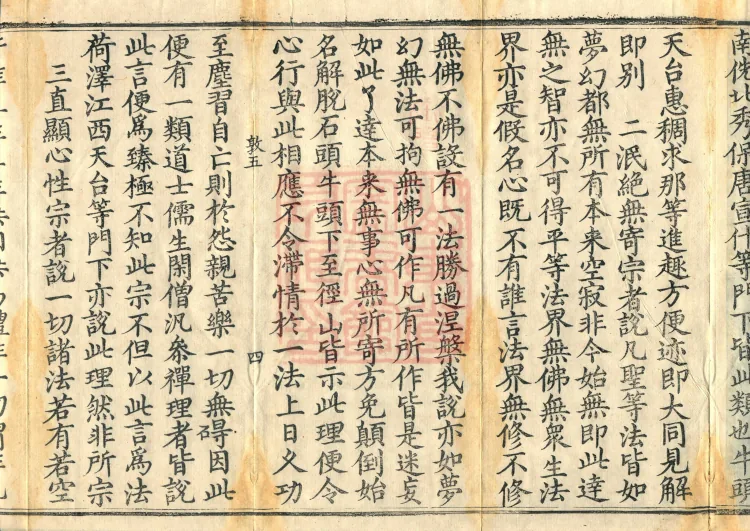 南侁北秀保唐宣什等門下皆此類也牛頭
天台惠稠求那等進趣方便迹即大同見解
即别　二泯絶無寄宗者說凡聖等法皆如
夢幻都無所有本来空寂非今始無即此達
無之智亦不可得平等法界無佛無衆生法
界亦是假名心既不有誰言法界無修不修
無佛不佛設有一法勝過涅槃我說亦如夢
幻無法可拘無佛可作凡有所作皆是迷妄
如此了達本来無事心無所寄方免顛倒始
名解脫石頭牛頭下至徑山皆示此理便令
心行與此相應不令滯情於一法上日久功
敦五　四
至塵習自亡則於怨親苦樂一切無碍因此
便有一類道士儒生閑僧汎叅禪理者皆說
此言便爲臻極不知此宗不但以此言爲法
荷澤江西天台等門下亦說此理然非所宗
三直顯心性宗者說一切諸法若有若空